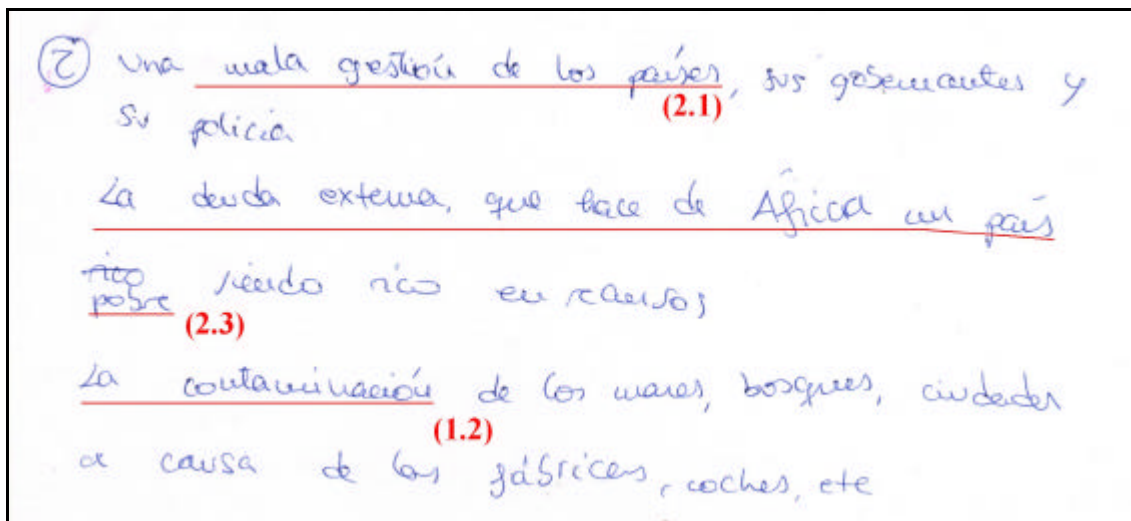 ② Una mala gestión de los países, sus gobernantes y
(2.1)
su policia
La deuda externa, que hace de África un país
rico
pobre siendo rico en recursos
(2.3)
La contaminación de los mares, bosques, ciudades
(1.2)
a causa de las fábricas, coches, etc